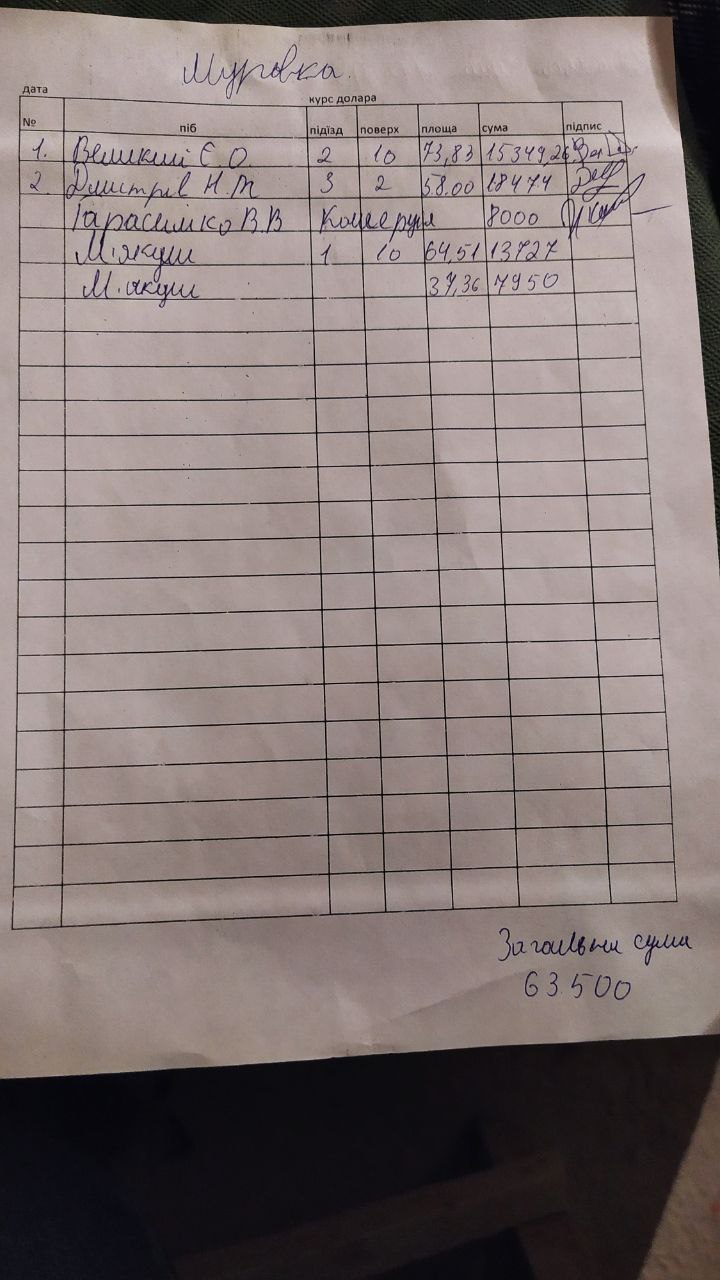 Муровка.
дата
курс долара
№ піб підїзд поверх площа сума підпис
1. Великий Є О. 2 10 73,83 15349,26
2. Дмитрів Н. М 3 2 58.00 18474
Гарасимко В.В 8000
М'якуш 1 10 64,51 13727
М. якуш 37,36 7950
Загальна сума
63.500